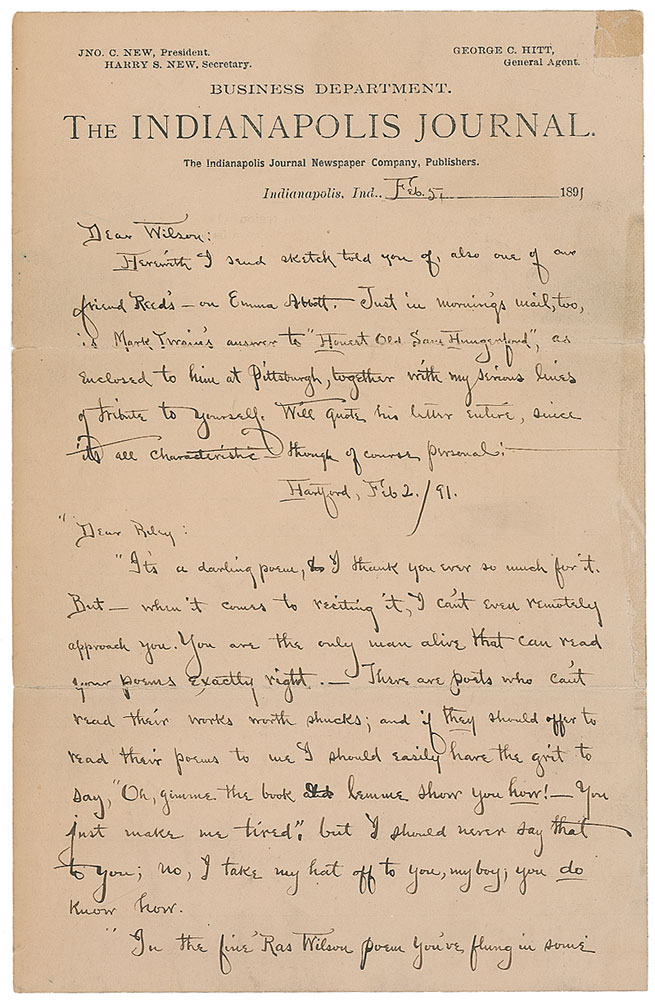 JNO. C. NEW, President.
HARRY S. NEW, Secretary.
GEORGE C. HITT,
General Agent.
BUSINESS DEPARTMENT.
THE INDIANAPOLIS JOURNAL.
The Indianapolis Journal Newspaper Company, Publishers.
Indianapolis, Ind., Feb. 5, 1891
Dear Wilson:
Herewith I send sketch told you of, also one of our
friend Reed's — on Emma Abbott. Just in morning's mail, too,
is Mark Twain's answer to "Honest Old Sam Hungerford", as
enclosed to him at Pittsburgh, together with my serious lines
of tribute to yourself. Will quote his letter entire, since
it's all characteristic — though of course personal:
Hartford, Feb 2./91.
"Dear Riley:
"It's a darling poem, & I thank you ever so much for it.
But — when 't comes to reciting it, I can't even remotely
approach you. You are the only man alive that can read
your poems exactly right. — There are poets who can't
read their works worth shucks; and if they should offer to
read their poems to me I should easily have the grit to
say, "Oh, gimme the book lemme show you how! — You
just make me tired". but I should never say that
to you; no, I take my hat off to you, my boy; you do
know how.
"In the fine 'Ras Wilson poem you've flung in some